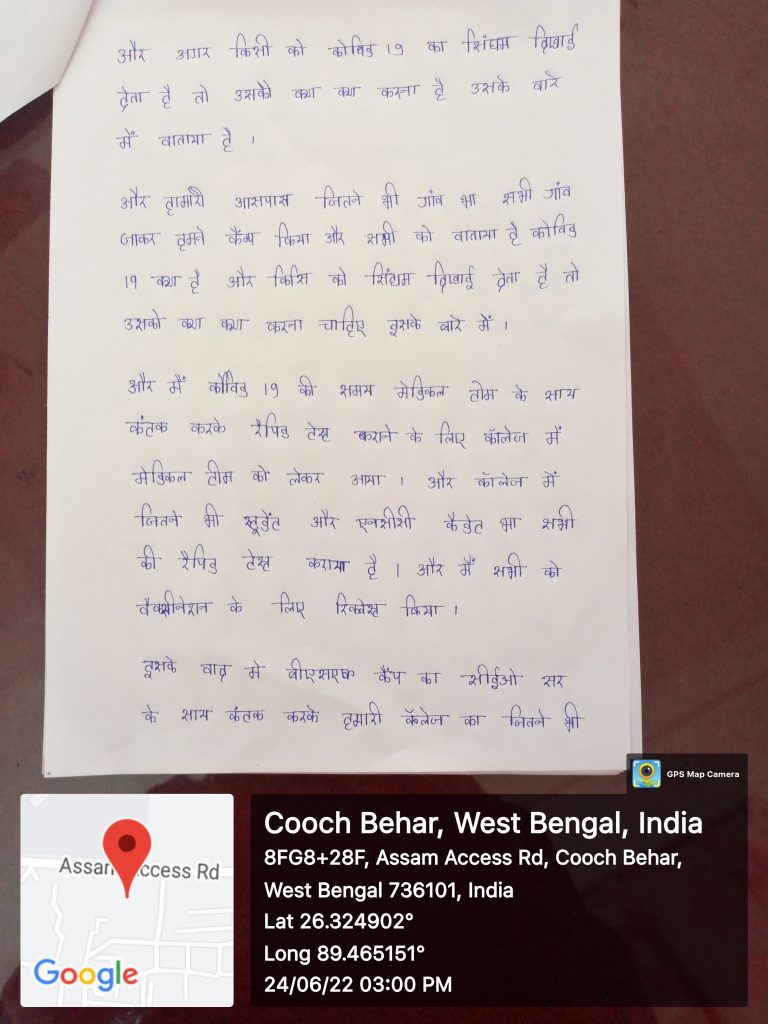 और अगर किसी को कोविड 19 का सिंघम दिखाई
देता है तो उसको क्या क्या करना है उसके बारे
में वाताया है ।
और हामारी आसपास जितने भी गांव भा सभी गांव
जाकर हमने कैम्प किया और सभी को वाताया है कोविड
19 क्या है और किसि को सिंघम दिखाई देता है तो
उसको क्या क्या करना चाहिए इसके बारे में ।
और मैं कोविड 19 की समय मेडिकल टीम के साथ
कंतक करके रैपिड टेस्ट कराने के लिए कॉलेज में
मेडिकल टीम को लेकर आया । और कॉलेज में
जितने भी स्टूडेंट और एनसीसी कैडेट भा सभी
की रैपिड टेस्ट कराया है । और मैं सभी को
वैक्सीनेशन के लिए रिक्वेस्ट किया ।
इसके वाद मे वीएसएफ कैंप का सीईओ सर
के साथ कंतक करके हमारी कॅलेज का जितने भी
GPS Map Camera
Cooch Behar, West Bengal, India
8FG8+28F, Assam Access Rd, Cooch Behar,
West Bengal 736101, India
Lat 26.324902°
Long 89.465151°
24/06/22 03:00 PM
Assam Access Rd
Google